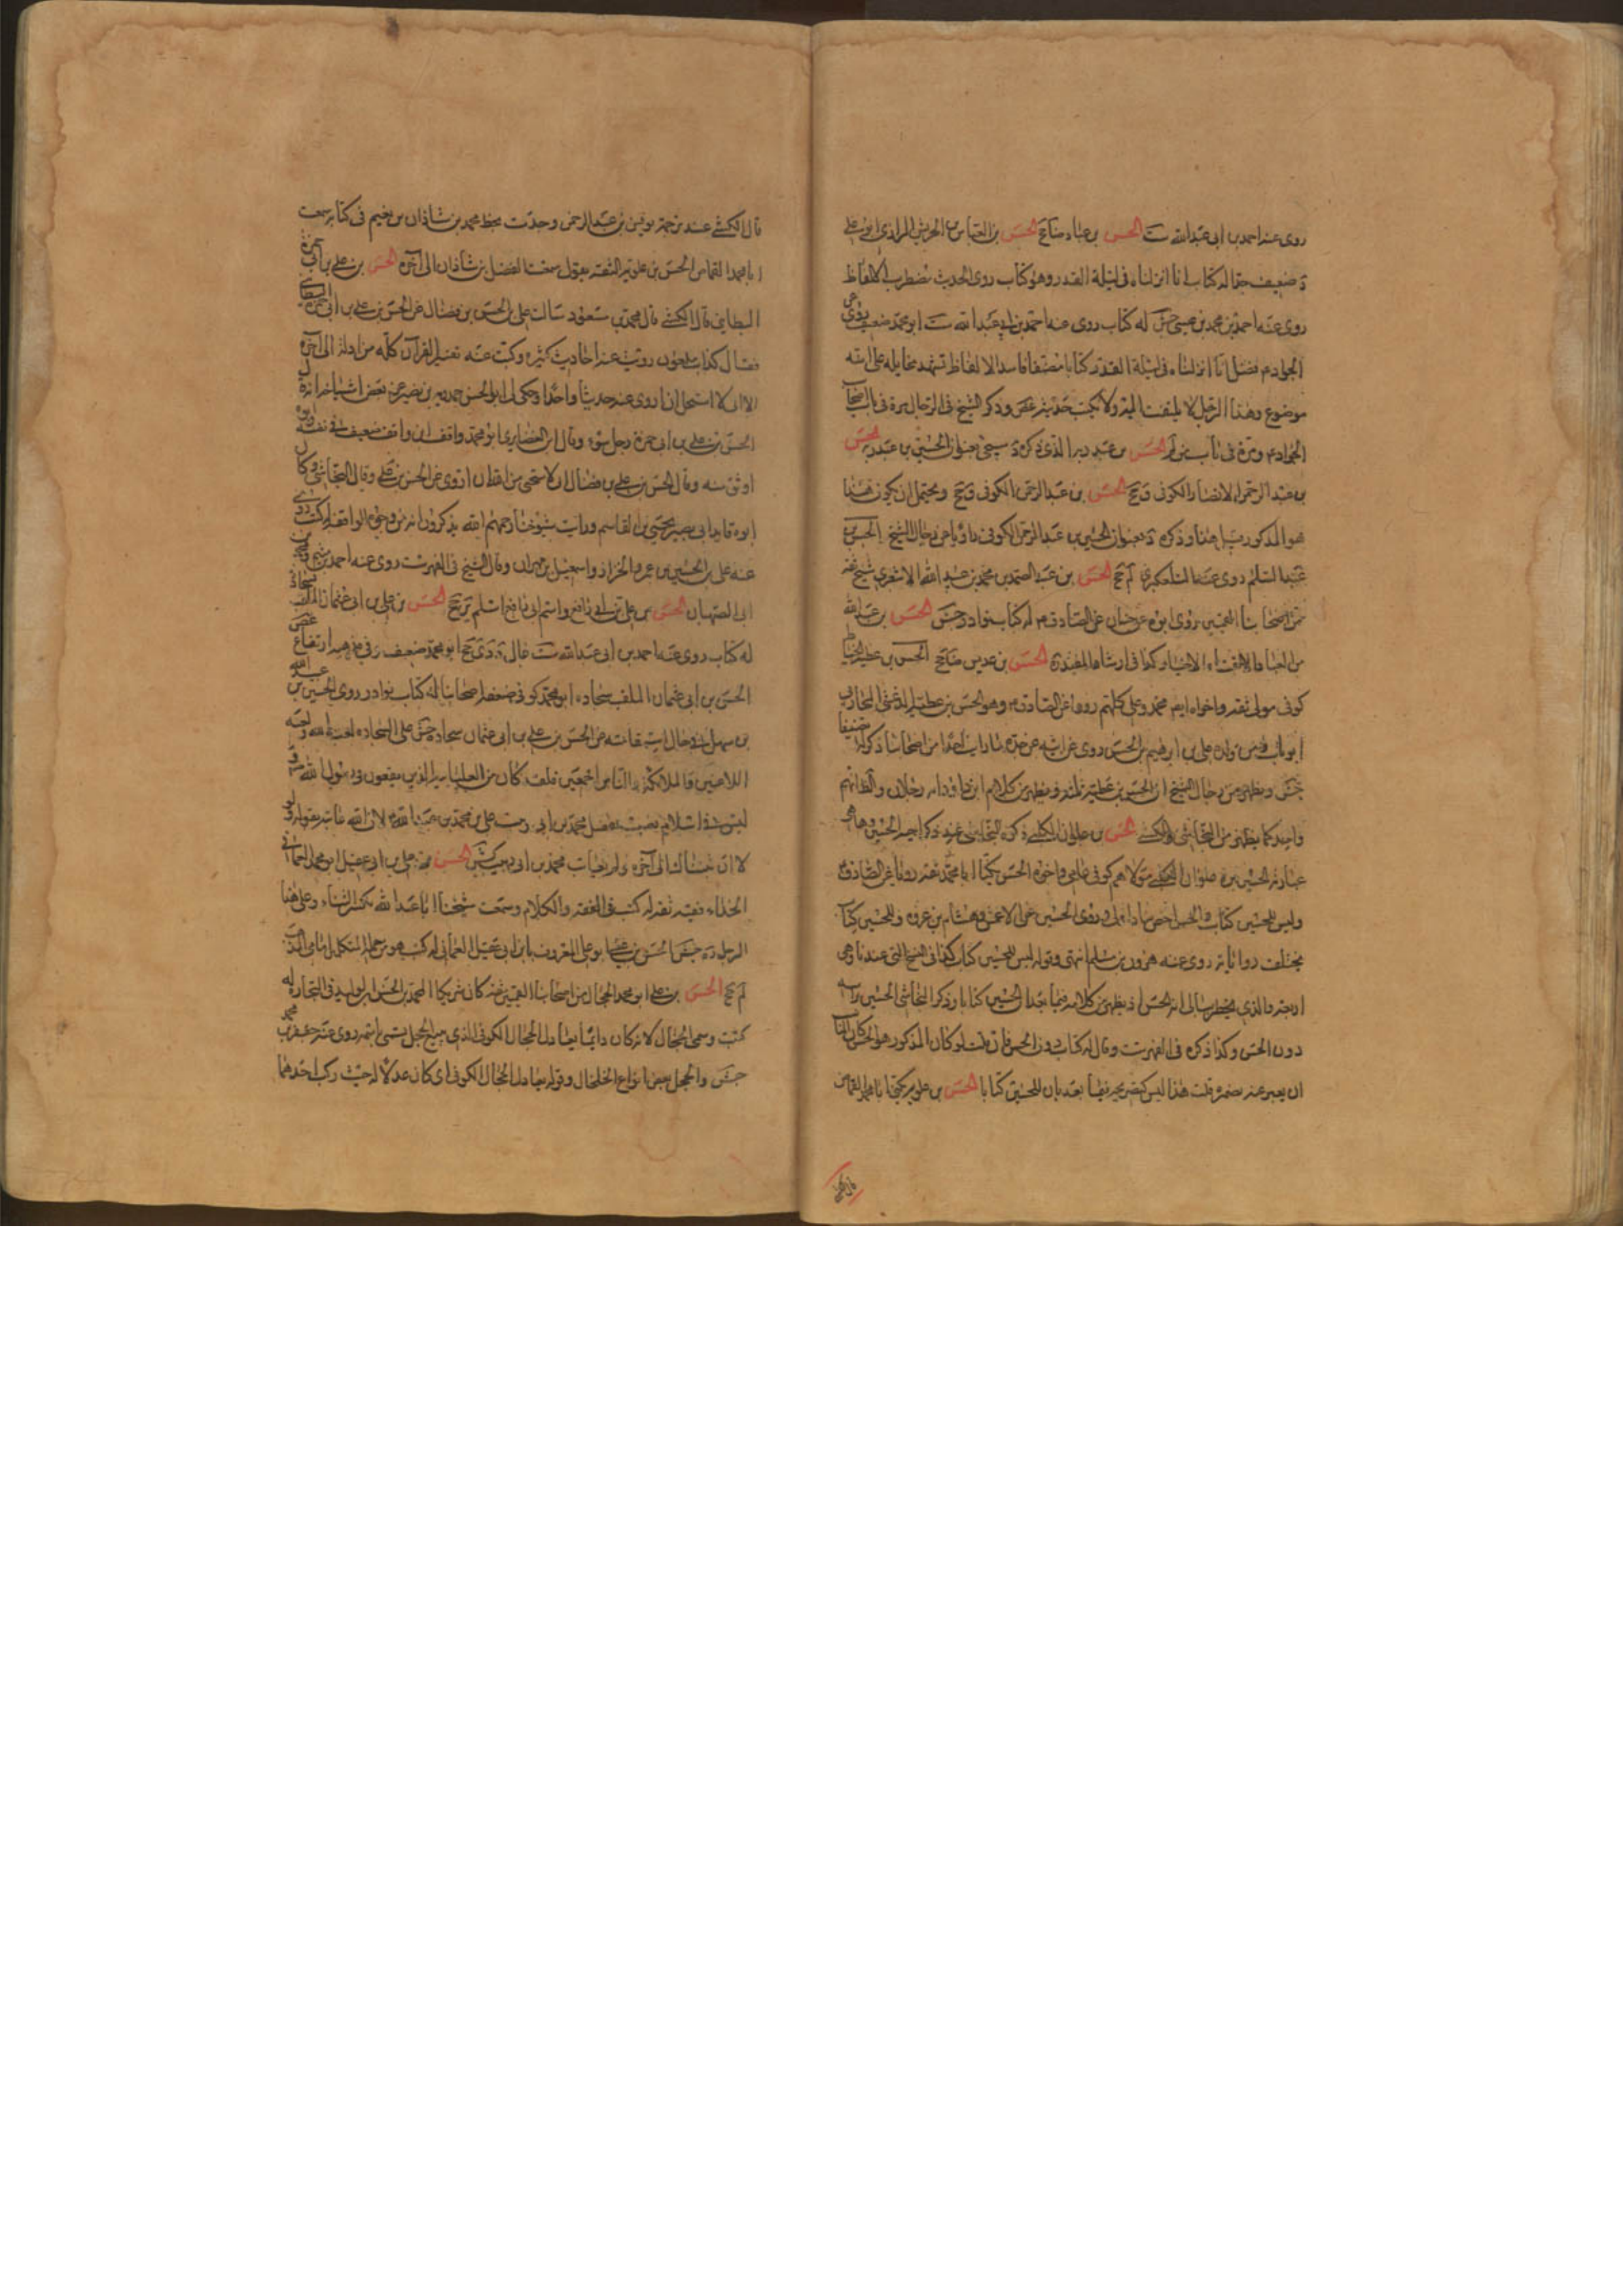 روى عنه احمد بن ابى عبد الله ست الحسن بن عباد ضا جخ الحسن بن العباس بن الحريش الرازى ابو على
ضعيف جدا له كتاب انا انزلناه فى ليلة القدر وهو كتاب روى الحديث مضطرب الالفاظ
روى عنه احمد بن محمد بن عيسى جش له كتاب روى عنه احمد بن ابى عبد الله ست ابو محمد ضعيف روى عن
الجواد م فضل انا انزلناه فى ليلة القدر كتابا مصنفا فاسد الالفاظ تشهد مخايله على انه
موضوع وهذا الرجل لا يلتفت اليه ولا يكتب حديثه غض وذكر الشيخ فى الرجال مرة فى باب اصحاب
الجواد م ومرة فى باب من لم الحسن بن عبد ربه الذى ذكره سيجئ بعنوان الحسين بن عبد ربه الحسن
بن عبد الرحمن الانصارى الكوفى ق جخ الحسن بن عبد الرحمن الكوفى ق جخ ويحتمل ان يكون هذا
هو المذكور وذكره بعنوان الحسين بن عبد الرحمن الكوفى رجال الشيخ الحسن بن
عبد السلم روى عنه التلعكبرى لم جخ الحسن بن عبد الصمد بن محمد بن عبيد الله الاشعرى شيخ ثقة
من اصحابنا القميين روى ابوه عن حنان عن الصادق م له كتاب نوادر جش الحسن بن عبد الله
من العباد الاتقياء الاخيار كذا فى ارشاد المفيد الحسن بن عديس ضا جخ الحسن بن عطية الحناط
كوفى مولى ثقة واخواه ايضا محمد وعلى كلهم رووا عن الصادق م وهو الحسن بن عطية الدغشى المحاربى
ابو ناب ومن ولده على بن ابرهيم بن الحسن روى عن ابيه عن جده ما رايت احدا من اصحابنا ذكر له تصنيفا
جش ويظهر من رجال الشيخ ان الحسن بن عطية ثلثة ويظهر من كلام ابن داود انه رجلان والظ انهم
واحد كما يظهر من النجاشى والكشى الحسن بن علوان الكلبى ذكره النجاشى عند ذكر اخيه الحسين وهاهى
عبارته الحسين بن علوان الكلبى مولاهم كوفى عامى واخوه الحسن يكنى ابا محمد ثقة رويا عن الصادق م
وليس للحسين كتاب والحسن اخص بنا واولى وروى الحسين عن الاعمش وهشام بن عروة وللحسين كتاب
يختلف رواياته روى عنه هرون بن مسلم انتهى وقوله ليس للحسين كتاب كذا فى النسخ التى عندنا وهى
اربعة والذى يخطر ببالى انه الحسن اذ يظهر من كلامه فيما بعد ان للحسين كتابا وذكر النجاشى الحسين براسه
دون الحسن وكذا ذكره فى الفهرست وقال له كتاب دون الحسن فان قلت لو كان المذكور هو الحسن كان المناسب
ان يعبر عنه بضمير قلت هذا ليس كتصريحه فيما بعد بان للحسين كتابا الحسن بن علويه يكنى ابا محمد القماص
قال الكشى
قال الكشى عند ترجمة يونس بن عبد الرحمن وجدت بخط محمد بن شاذان بن نعيم فى كتابه سمعت
ابا محمد القماص الحسن بن علويه الثقة يقول سمعت الفضل بن شاذان الى آخره الحسن بن على بن ابى حمزة
البطاينى قال الكشى قال محمد بن مسعود سالت على بن الحسن بن فضال عن الحسن بن على بن ابى حمزة البطاينى
فقال كذاب ملعون رويت عنه احاديث كثيرة وكتبت عنه تفسير القرآن كله من اوله الى آخره
الا انى لا استحل ان اروى عنه حديثا واحدا وحكى لى ابو الحسن حمدويه بن نصير عن بعض اشياخه انه قال
الحسن بن على بن ابى حمزة رجل سوء وقال ابن الغضايرى ابو محمد واقف ابن واقف ضعيف فى نفسه وابوه
اوثق منه وقال الحسن بن على بن فضال انى لاستحيى من الله ان اروى عن الحسن بن على وقال النجاشى وكان
ابوه قايد ابى بصير يحيى بن القاسم ورايت شيوخنا رحمهم الله يذكرون انه من وجوه الواقفة له كتب روى
عنه على بن الحسين بن عمرو الخزاز واسمعيل بن مهران وقال الشيخ فى الفهرست روى عنه احمد بن ميثم ومحمد بن
ابى الصهبان الحسن بن على بن ابى رافع واسم ابى رافع اسلم جخ الحسن بن على بن ابى عثمان الملقب سجادة
له كتاب روى عنه احمد بن ابى عبد الله ست غال جخ ابو محمد ضعيف وفى مذهبه ارتفاع غض
الحسن بن ابى عثمان الملقب سجادة ابو محمد كوفى ضعفه اصحابنا له كتاب نوادر روى الحسين بن عبيد الله
بن سهل فى حال استقامته عن الحسن بن على بن ابى عثمان سجادة جش على السجادة لعنة الله ولعنة
اللاعنين والملائكة والناس اجمعين فلقد كان من العليائية الذين يقعون فى رسول الله ص
ليس له فى الاسلام نصيب فضل محمد بن ابى زينب على محمد بن عبد الله لان الله عاتبه بقوله ولو
لا ان ثبتناك الى آخره ولم يعاتب محمد بن ابى زينب كش الحسن بن على بن ابى عقيل ابو محمد العمانى
الحذاء فقيه ثقة له كتب فى الفقه والكلام وسمعت شيخنا ابا عبد الله يكثر الثناء وعلى هذا
الرجل ره جش الحسن بن عيسى ابو على المعروف بابن ابى عقيل العمانى له كتب هو من جملة المتكلمين امامى المذهب
لم جخ الحسن بن على ابو محمد الحجال من اصحابنا القميين ثقة كان شريكا لمحمد بن الحسن بن الوليد فى التجارة له
كتب وسمى الحجال لانه كان دايما يعادل الحجال الكوفى الذى يبيع الحجل يسمى باسمه روى عنه جعفر بن محمد
جش والحجل بعض انواع الخلخال وقوله يعادل الحجال الكوفى اى كان عدلا له حيث ركب احدهما